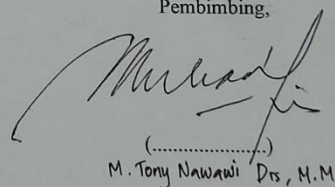 Pembimbing,
(....................)
M. Tony Nawawi Drs, M.M